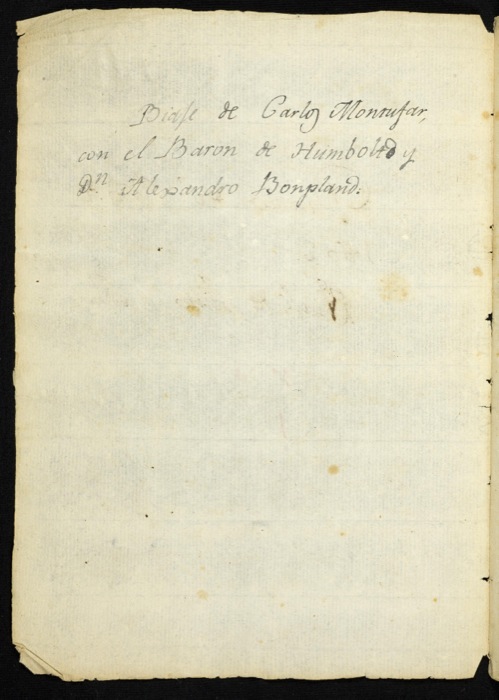 Biaje de Carlos Montufar,
con el Baron de Humboltd y
Dn. Alexandro Bonpland.